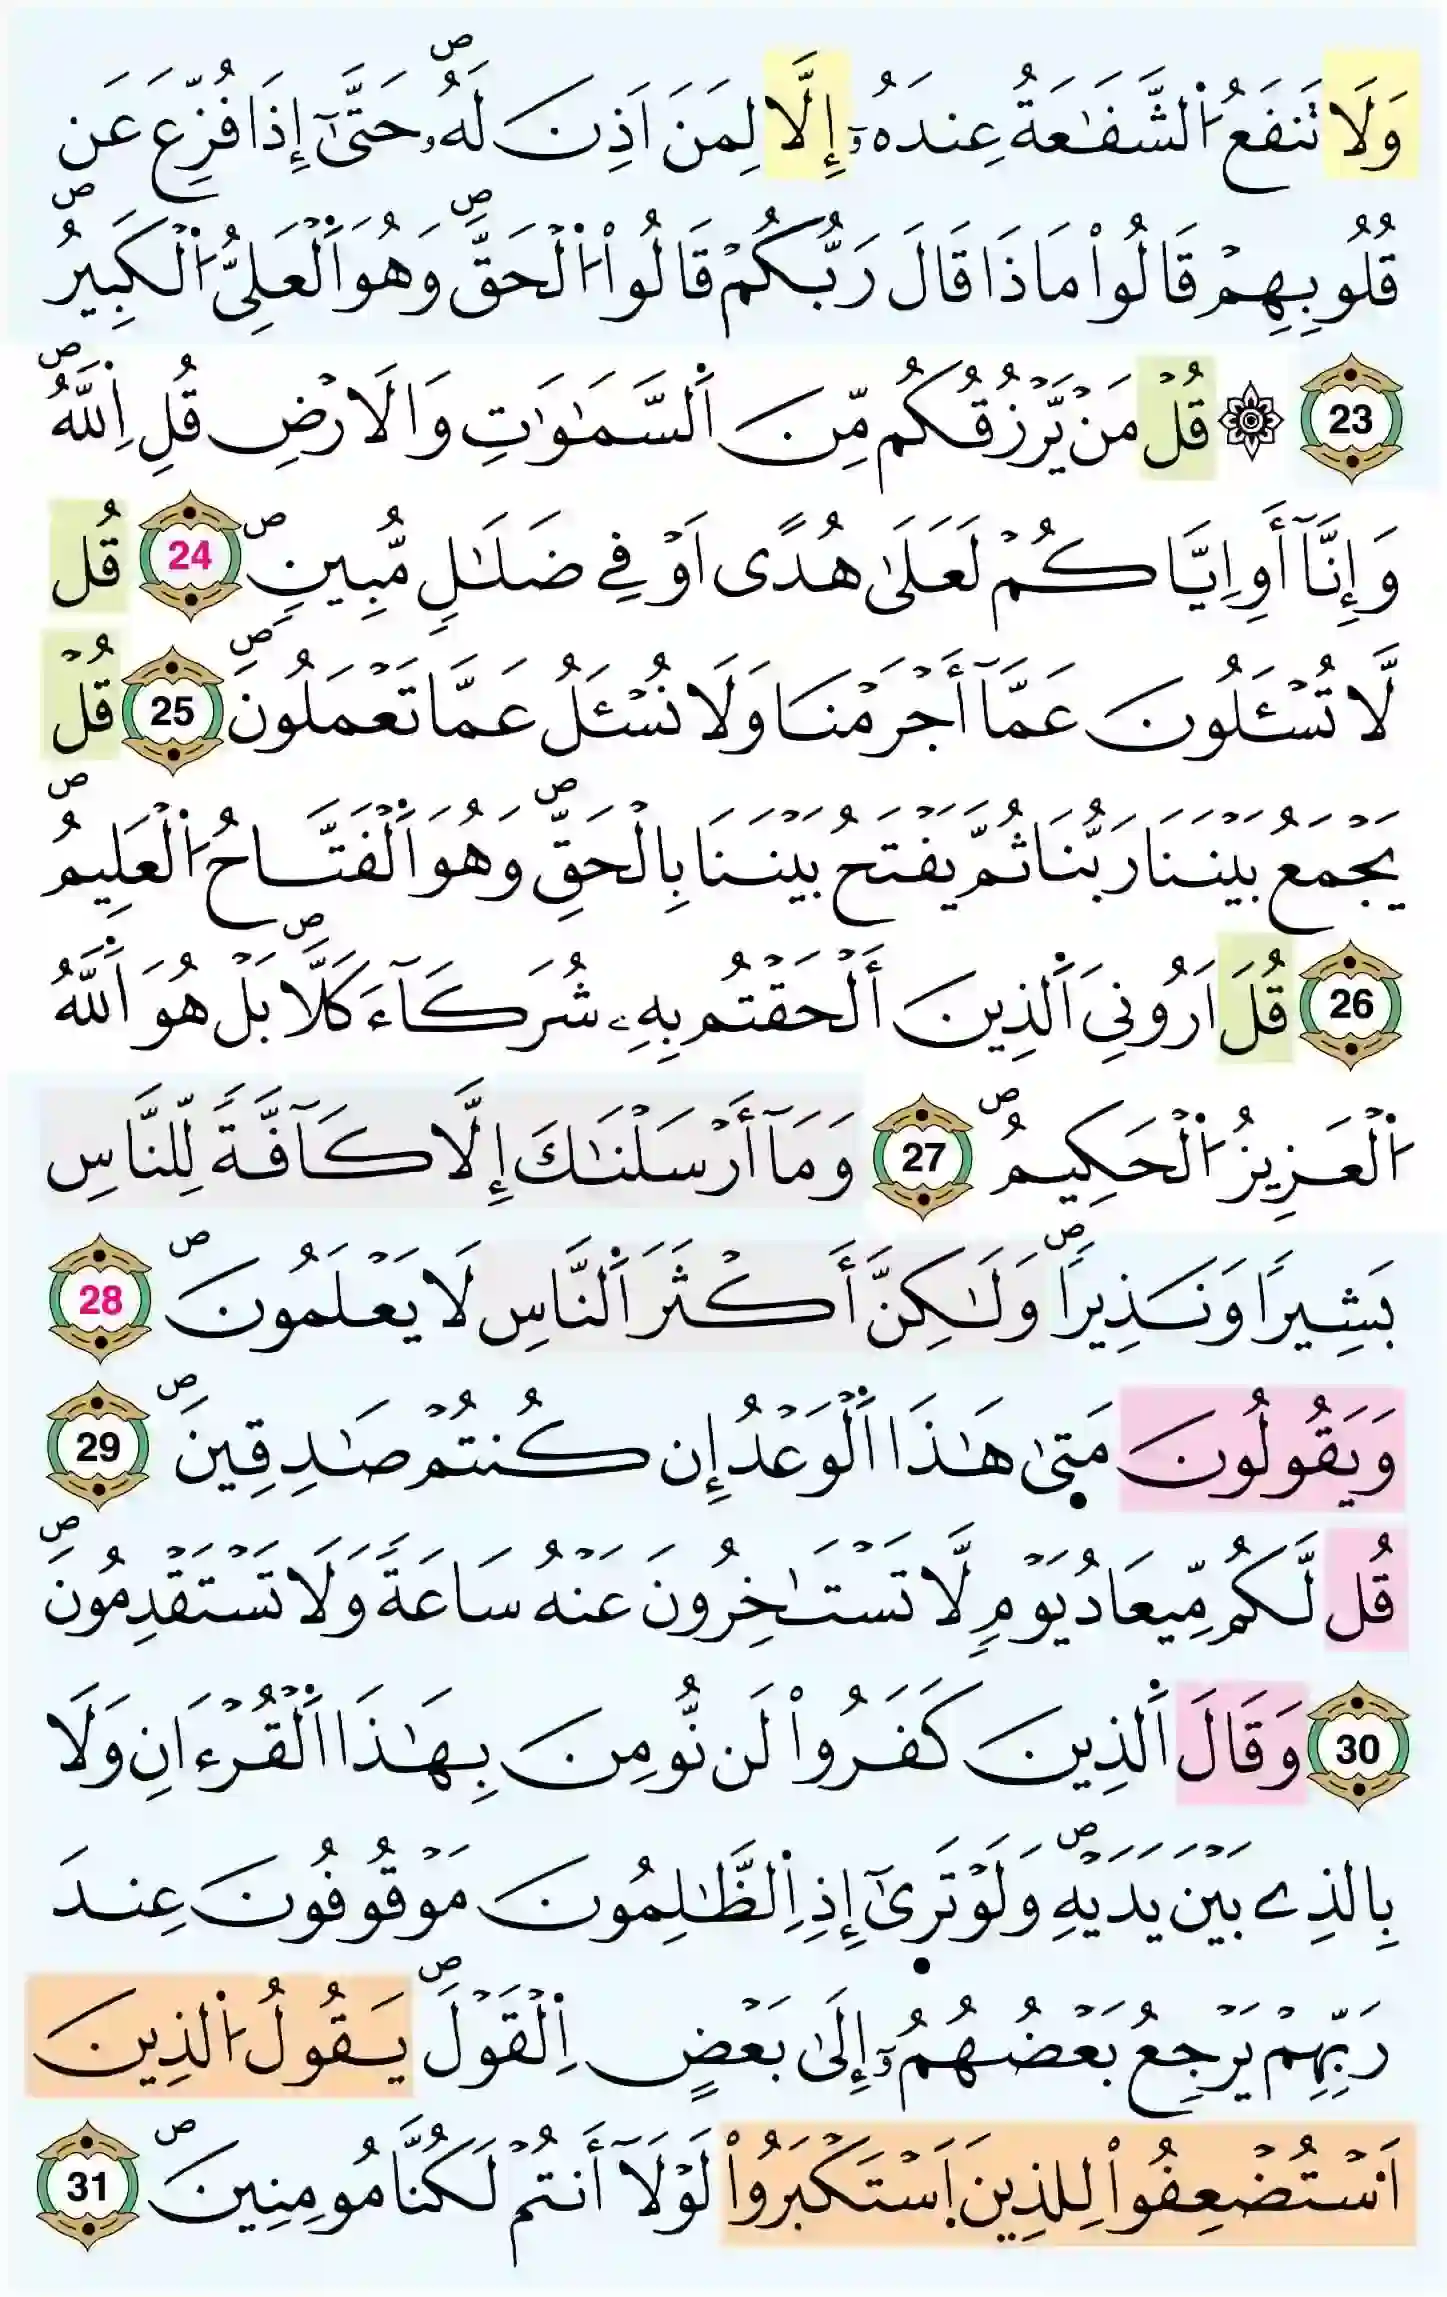 وَلَا تَنفَعُ اُ۬لشَّفَٰعَةُ عِندَهُۥٓ إِلَّا لِمَنَ اَذِنَ لَهُۥۖ حَتَّىٰٓ إِذَا فُزِّعَ عَن
قُلُوبِهِمْ قَالُواْ مَاذَا قَالَ رَبُّكُمْ قَالُواْ اُ۬لْحَقَّۖ وَهُوَ اَ۬لْعَلِيُّ اُ۬لْكَبِيرُۖ
23 ۞ قُلْ مَنْ يَّرْزُقُكُم مِّنَ اَ۬لسَّمَٰوَٰتِ وَالَارْضِ قُلِ اِ۬للَّهُۖ
وَإِنَّآ أَوِ اِيَّاكُمْ لَعَلَىٰ هُدًى اَوْ فِے ضَلَٰلٖ مُّبِينٖۖ 24 قُل
لَّا تُسْـَٔلُونَ عَمَّآ أَجْرَمْنَا وَلَا نُسْـَٔلُ عَمَّا تَعْمَلُونَۖ 25 قُلْ
يَجْمَعُ بَيْنَنَا رَبُّنَا ثُمَّ يَفْتَحُ بَيْنَنَا بِالْحَقِّۖ وَهُوَ اَ۬لْفَتَّاحُ اُ۬لْعَلِيمُۖ
26 قُلَ اَرُونِيَ اَ۬لذِينَ أَلْحَقْتُم بِهِۦ شُرَكَآءَ كَلَّاۖ بَلْ هُوَ اَ۬للَّهُ
اُ۬لْعَزِيزُ اُ۬لْحَكِيمُۖ 27 وَمَآ أَرْسَلْنَٰكَ إِلَّا كَآفَّةٗ لِّلنَّاسِ
بَشِيراٗ وَنَذِيراٗۖ وَلَٰكِنَّ أَكْثَرَ اَ۬لنَّاسِ لَا يَعْلَمُونَۖ 28
وَيَقُولُونَ مَتَىٰ هَٰذَا اَ۬لْوَعْدُ إِن كُنتُمْ صَٰدِقِينَۖ 29
قُل لَّكُم مِّيعَادُ يَوْمٖ لَّا تَسْتَٰخِرُونَ عَنْهُ سَاعَةٗ وَلَا تَسْتَقْدِمُونَۖ
30 وَقَالَ اَ۬لذِينَ كَفَرُواْ لَن نُّومِنَ بِهَٰذَا اَ۬لْقُرْءَانِ وَلَا
بِالذِے بَيْنَ يَدَيْهِۖ وَلَوْ تَرَىٰٓ إِذِ اِ۬لظَّٰلِمُونَ مَوْقُوفُونَ عِندَ
رَبِّهِمْ يَرْجِعُ بَعْضُهُمُۥٓ إِلَىٰ بَعْضٍ اِ۬لْقَوْلَۖ يَقُولُ اُ۬لذِينَ
اَ۟سْتُضْعِفُواْ لِلذِينَ اَ۪سْتَكْبَرُواْ لَوْلَآ أَنتُمْ لَكُنَّا مُومِنِينَۖ 31